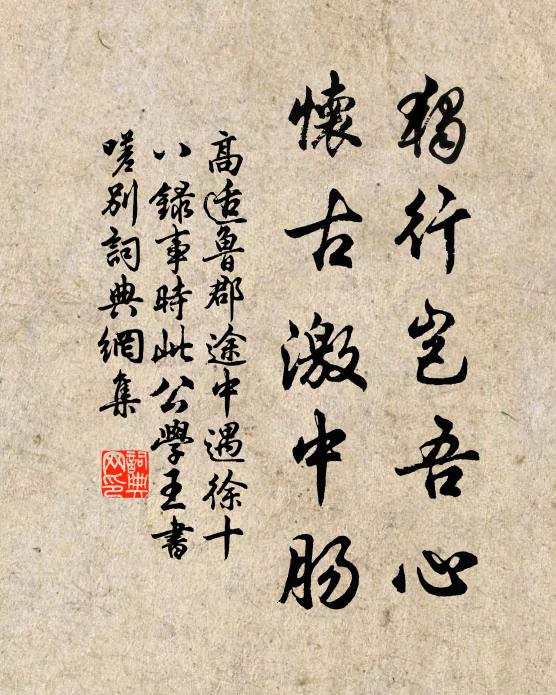 獨行豈吾心
懷古激中腸
高適魯郡途中遇徐十
八録事時此公學王書
嗟別詞典網集
詞典
网印